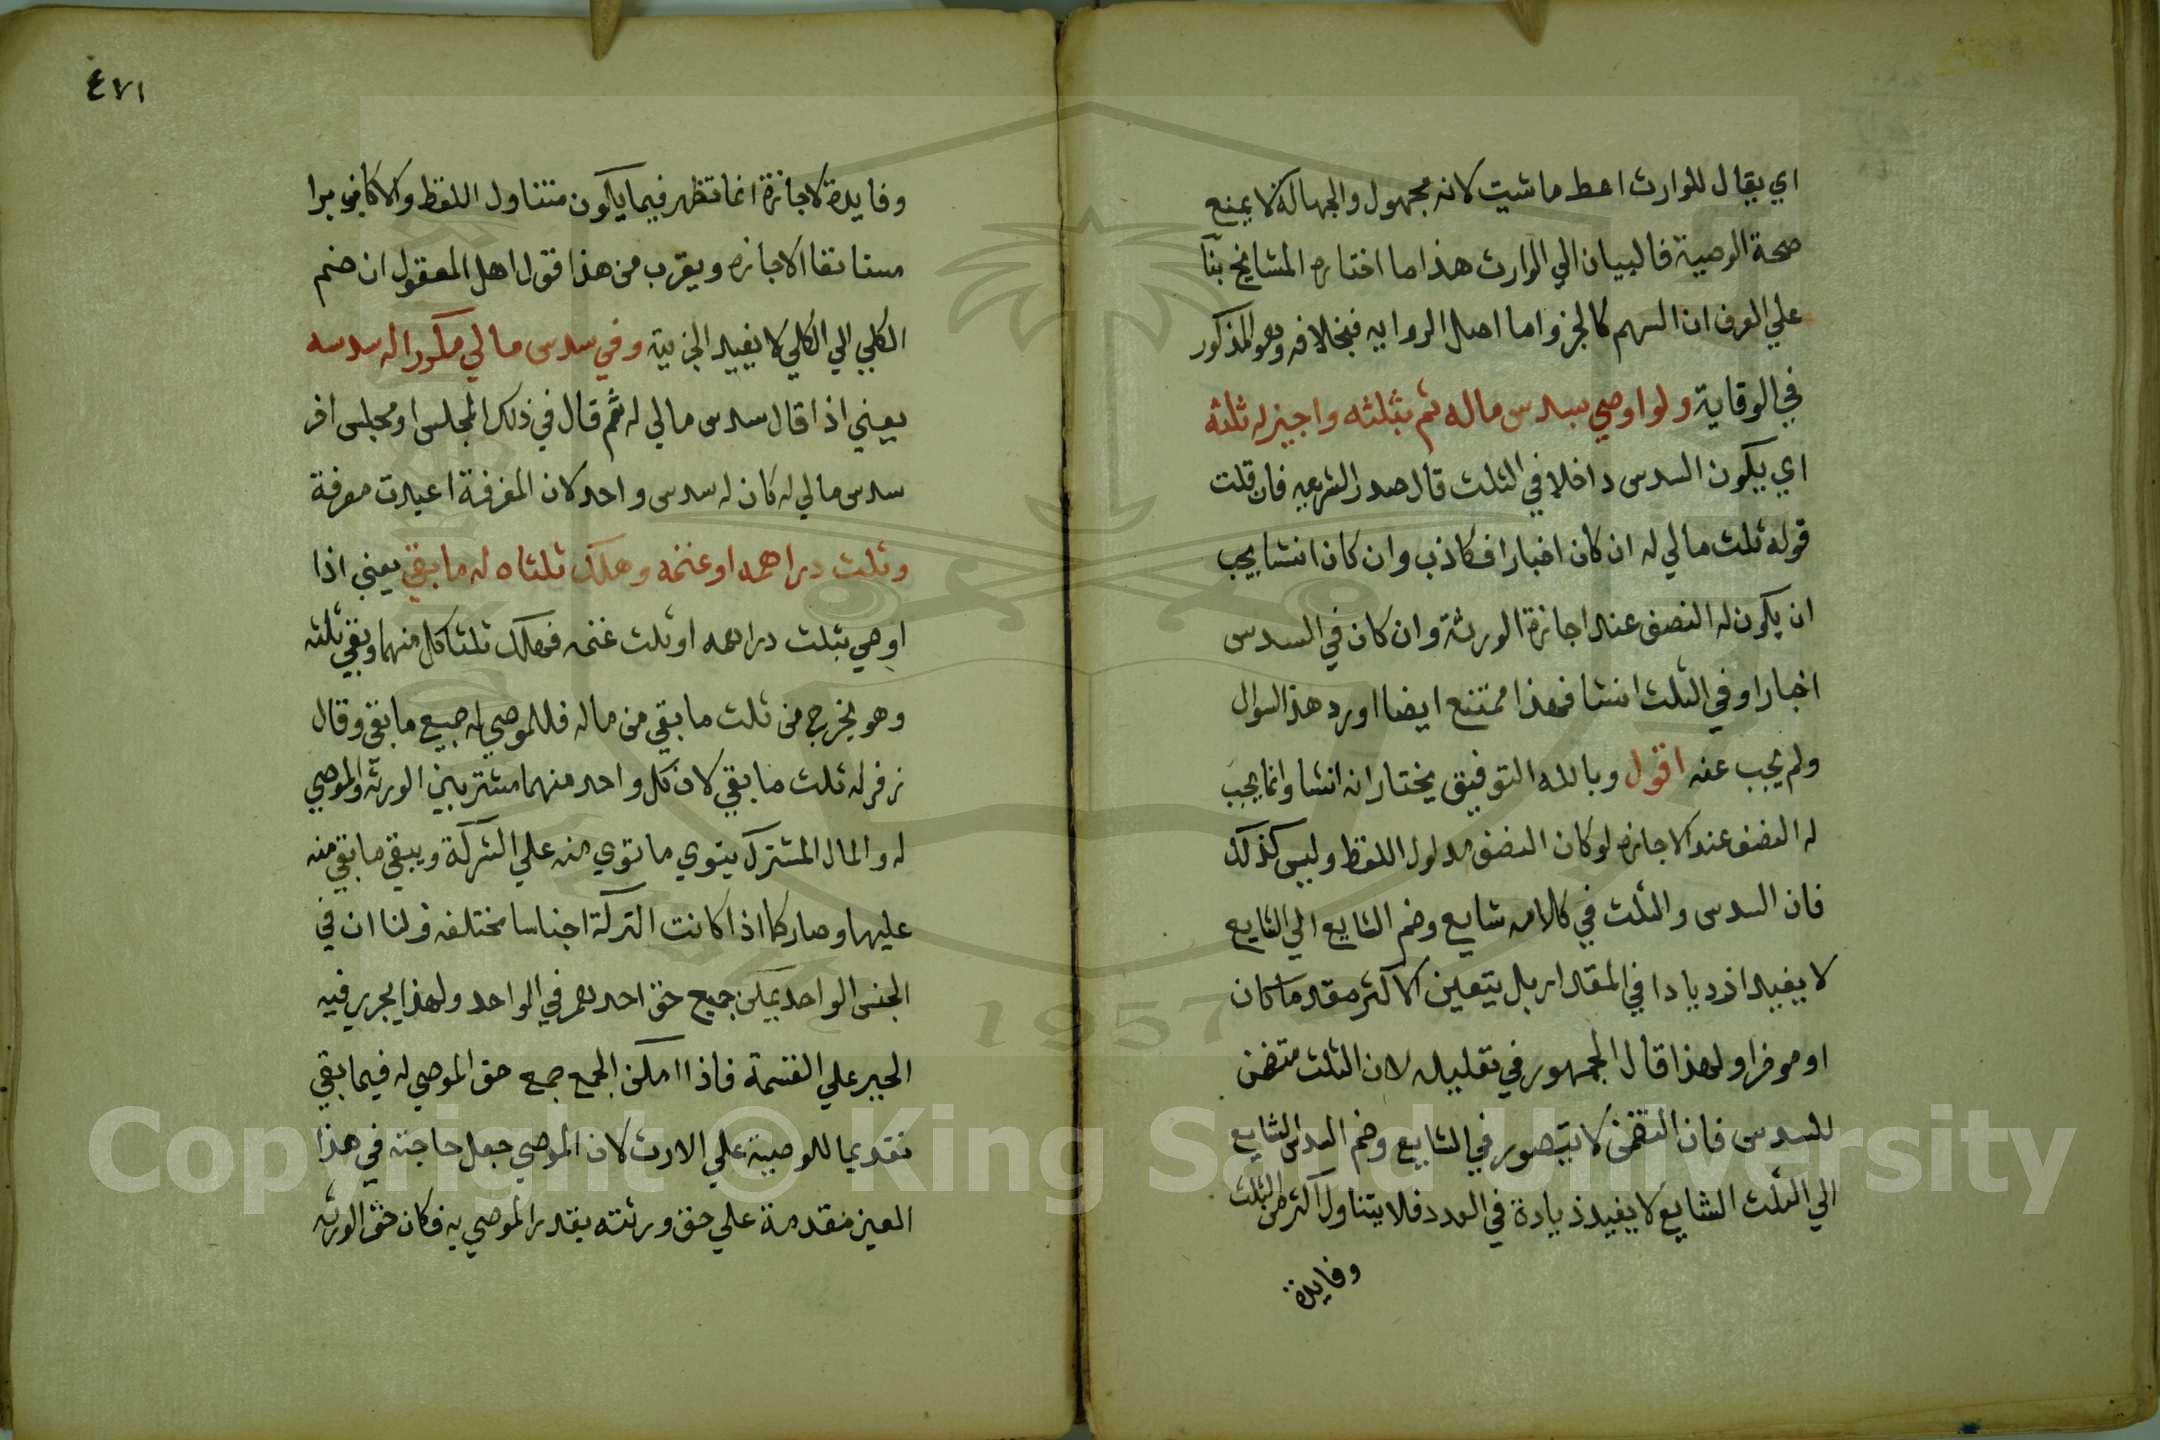 اي يقال للوارث اعط ماشيت لانه مجهول والجهالة لا يمنع
صحة الوصية فالبيان الي الوارث هذا ما اختاره المشايخ بنآ
علي العرف ان السهم كالجزو اما اصل الروايه فبخلافه وهو المذكور
في الوقاية ولو اوصي بسدس ماله ثم بثلثه واجيز له ثلثه
اي يكون السدس داخلا في الثلث قال صدر الشريعه فان قلت
قوله ثلث مالي له ان كان اخبارا فكاذب وان كان انشا يجب
ان يكون له النصف عند اجازة الورثة وان كان في السدس
اخبارا وفي الثلث انشا فهذا ممتنع ايضا اورد هذا السوال
ولم يجب عنه اقول وبالله التوفيق يختار انه انشا وانما يجب
له النصف عند الاجازه لو كان النصف مدلول اللفظ وليس كذلك
فان السدس والثلث في كلامه شايع وضم الشايع الي الشايع
لا يفيد ازديادا في المقدار بل يتعين الاكثر مقدما كان
او موخرا ولهذا قال الجمهور في تعليله لان الثلث متضمن
للسدس فان التضمن لا يتصور في الشايع وضم السدس الشايع
الي الثلث الشايع لا يفيد زيادة في العدد فلا يتناول اكثر من الثلث
وفايدة
٤٧١
وفايدة الاجازة انما تظهر فيما يكون متناول اللفظ والا كان برا
مستانفا الاجازه ويقرب من هذا قول اهل المعقول ان ضم
الكلي الي الكلي لا يفيد الجزيية وفي سدس مالي مكررا له سدسه
يعني اذا قال سدس مالي له ثم قال في ذلك المجلس او مجلس اخر
سدس مالي له كان له سدس واحد لان المعرفة اعيدت معرفة
وثلث دراهمه او غنمه وهلك ثلثاه له ما بقي يعني اذا
اوصي بثلث دراهمه او ثلث غنمه فهلك ثلثا كل منهما وبقي ثلثه
وهو يخرج من ثلث ما بقي من ماله فللموصي له جميع ما بقي وقال
زفر له ثلث ما بقي لان كل واحد منهما مشتر بين الورثة والموصي
له والمال المشترك يتوي ما توي منه علي الشركة ويبقي ما بقي منه
عليها وصار كما اذا كانت التركة اجناسا مختلفه ولنا ان في
الجنس الواحد يمكن جميع حق احدهم في الواحد ولهذا يجري فيه
الجبر علي القسمة فاذا امكن الجمع جمع حق الموصي له فيما بقي
تقديما للوصية علي الارث لان الموصي جعل حاجته في هذا
المعين مقدمة علي حق ورثته بقدر الموصي به فكان حق الورثه
Copyright © King Saud University
1957